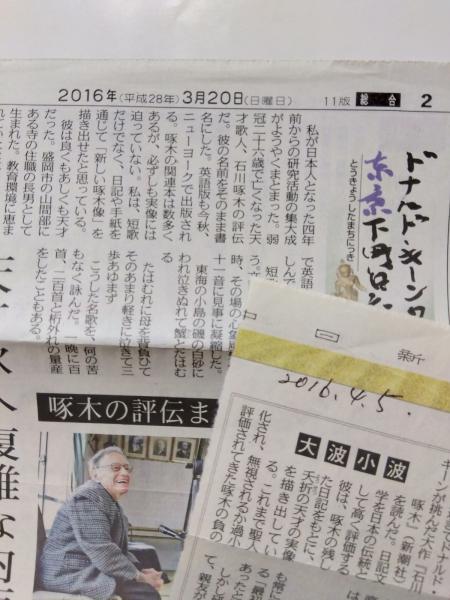 2016年(平成28年)3月20日(日曜日)
11版
総合
2
ドナルド・キーンの
東京下町日記
とうきょうしたまちにっき
私が日本人となった四年
前からの研究活動の集大成
がようやくまとまった。弱
冠二十六歳で亡くなった天
才歌人、石川啄木の評伝
だ。彼の名前をそのまま書
名にした。英語版も今秋、
ニューヨークで出版され
る。啄木の関連本は数多く
あるが、必ずしも実像には
迫っていない。私は、短歌
だけでなく、日記や手紙を
通じて「新しい啄木像」を
描き出せたと思っている。
彼は良くもあしくも天才
だった。盛岡市の山間部に
ある寺の住職の長男として
生まれた。教育環境に恵ま
で英語
しんで
短
う。
時、その場の心象
十一音に見事に凝縮した。
東海の小島の磯の白砂に
われ泣きぬれて蟹とたはむ
る
たはむれに母を背負ひて
そのあまり軽きに泣きて三
歩あゆまず
こうした名歌を、何の苦
もなく詠んだ。一晩に百
首、二百首と桁外れの量産
をしたこともある。
啄木の評伝ま
複雑な
日
新
2016.4.5.
大波小波
ドナルド・
キーンが挑んだ大作『石川
啄木』(新潮社)
を読んだ。日記文
学を日本の伝統と
して高く評価する
彼は、啄木の残し
た日記をもとに、
夭折の天才の実像
を描き出してい
る。これまで聖人
化され、無視されるか過小
評価されてきた啄木の負の